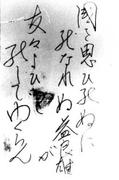 国を思ひ死ぬに
死なれぬ益良雄が
友々よびつゝ
死してゆくらん